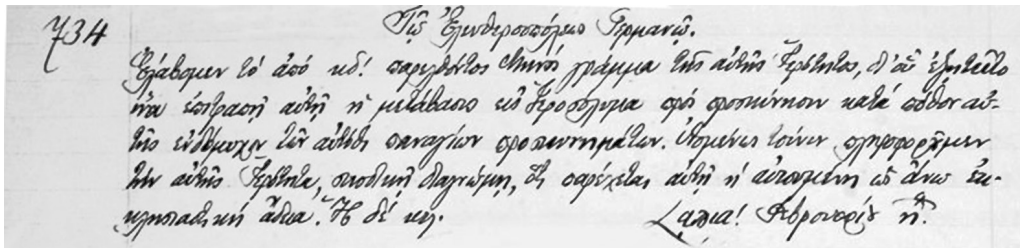 734
Τῷ Ἐλευθερουπόλεως Γερμανῷ.
Ἐλάβομεν τό ἀπό κδ! παρελθόντος Μηνός γράμμα τῆς αὐτῆς Ἱερότητος, δι' οὗ ἐζητεῖτο
ἵνα ἐπιτραπῇ αὐτῇ ἡ μετάβασις εἰς Ἱεροσόλυμα πρός προσκύνησιν κατά πόθον αὐ-
τῆς ἐνδόμυχον τῶν αὐτόθι παναγίων προσκυνημάτων. Ἀπαντῶντες τοίνυν πληροφοροῦμεν
τήν αὐτῆς Ἱερότητα, συνοδικῇ διαγνώμῃ, ὅτι παρέχεται αὐτῇ ἡ αἰτουμένη ὡς ἄνω ἐκ-
κλησιαστική ἄδεια. Ἡ δέ κτλ.
͵αϡκα! Φεβρουαρίου η!